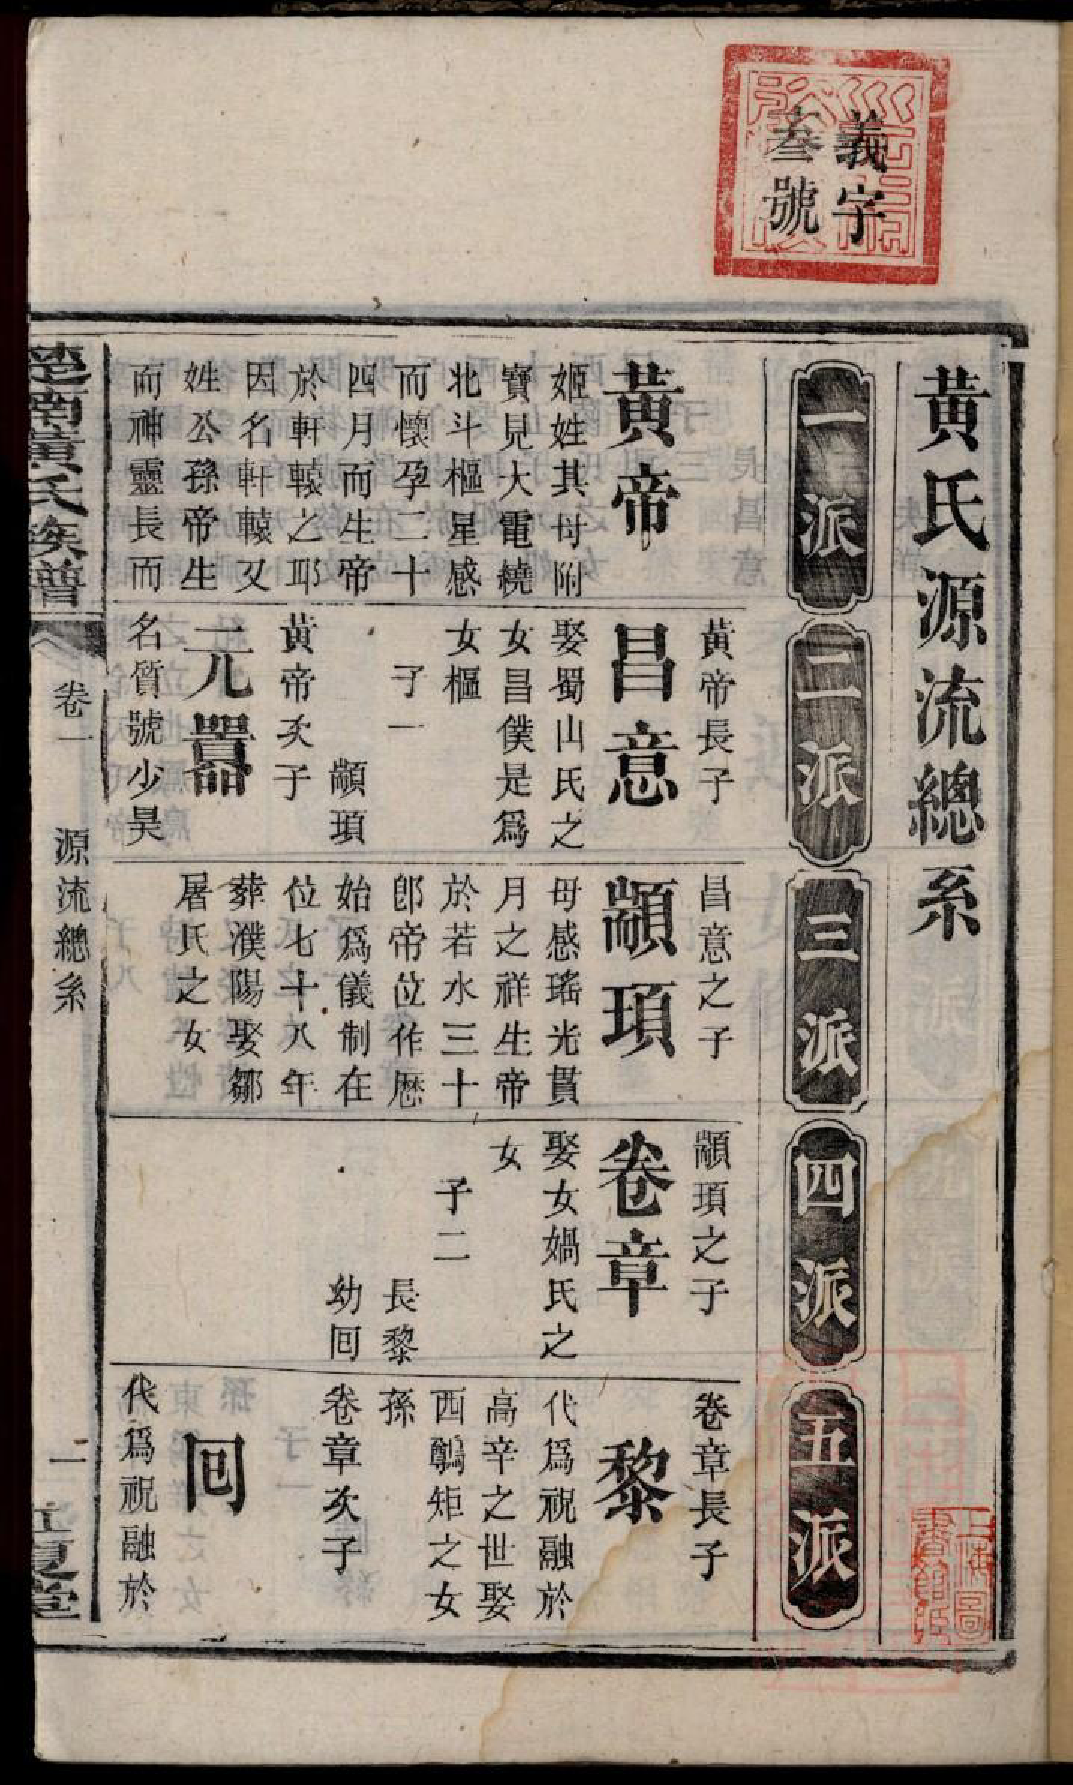 義字
叁號
黃氏源流總系
一派
二派
三派
四派
五派
黃帝
姬姓其母附
寶見大電繞
北斗樞星感
而懷孕二十
四月而生帝
於軒轅之邱
因名軒轅又
姓公孫帝生
而神靈長而
黃帝長子
昌意
娶蜀山氏之
女昌僕是爲
女樞
子一
顓頊
黃帝次子
元囂
名質號少昊
昌意之子
顓頊
母感瑤光貫
月之祥生帝
於若水三十
卽帝位作厯
始爲儀制在
位七十八年
葬濮陽娶鄒
屠氏之女
顓頊之子
卷章
娶女媧氏之
女
子二
長黎
幼回
卷章長子
黎
代爲祝融於
高辛之世娶
西鷭矩之女
孫
卷章次子
回
代爲祝融於
楚南黃氏族譜
卷一
源流總系
一
江夏堂
上海圖
書館臧